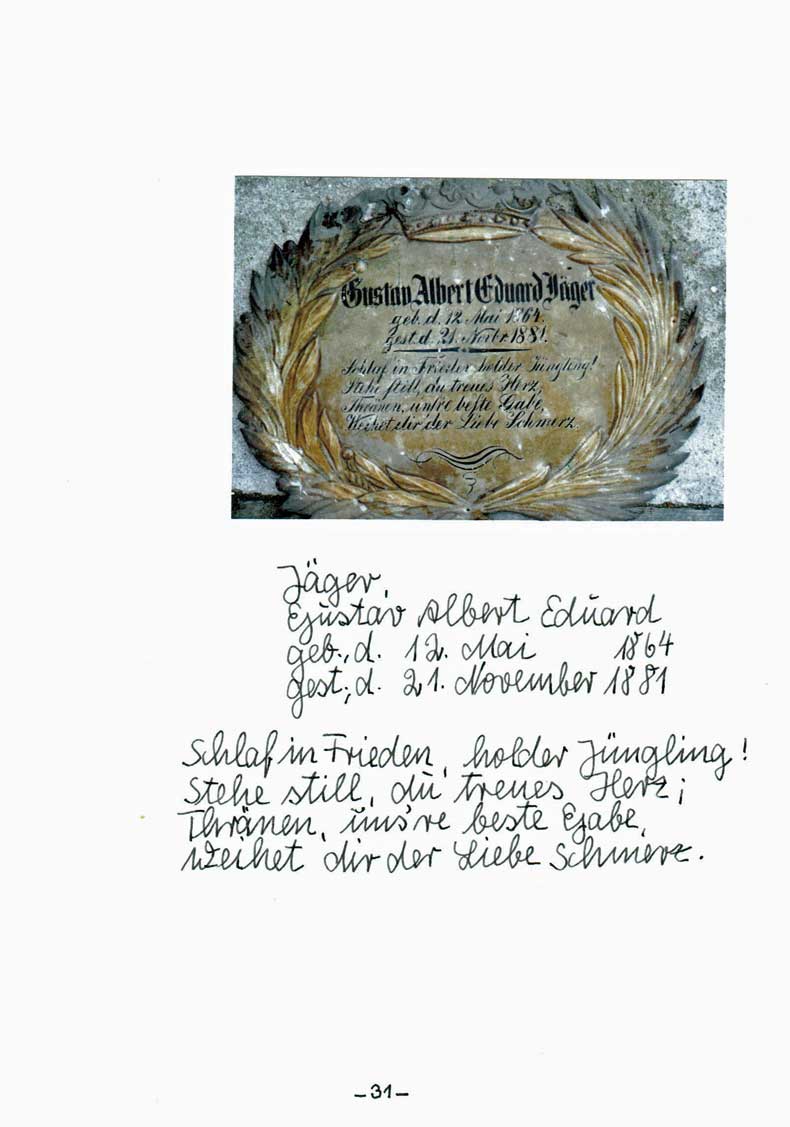 Gustav Albert Eduard Jäger
geb. d. 12. Mai 1864.
Gest. d. 21. Novbr. 1881.
Schlaf in Frieden, holder Jüngling!
Stehe still, du treues Herz,
Thränen, unsre beste Gabe,
Weihet dir der Liebe Schmerz.
Jäger,
Gustav Albert Eduard
geb., d. 12. Mai 1864
gest., d. 21. November 1881
Schlaf in Frieden, holder Jüngling!
Stehe still, du treues Herz;
Thränen, uns're beste Gabe,
Weihet dir der Liebe Schmerz.
-31-